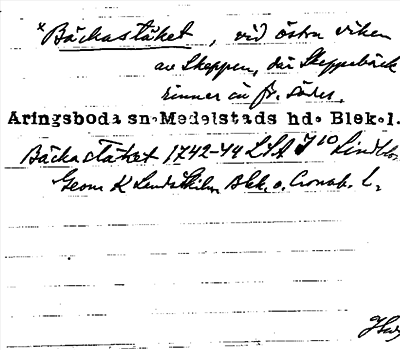 *Bäckastäket, vid östra viken
av Skeppen, där Skeppsbäck
rinner in fr. söder.
Aringsboda sn. Medelstads hd. Blek.l.
Bäckastäket 1742-44 LSA J10
Geom K Blek. o. Cronob. l.